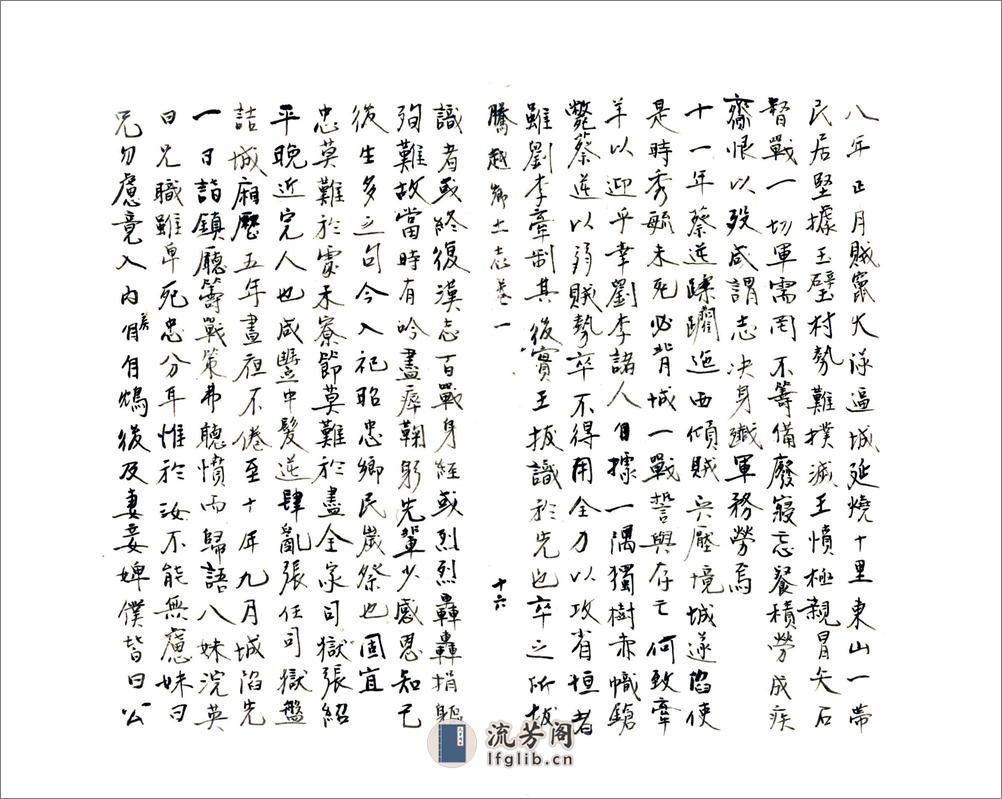 八年正月賊竄大洡逼城延燒十里東山一帶
民居堅據王璧村勢難撲滅王憤極親冒矢石
督戰一切軍需罔不籌備廢寢忘餐積勞成疾
齎恨以歿咸謂志決身殲軍務勞焉
十一年蔡逆蹂躪迤西傾賊兵壓境城遂陷使
是時秀毓未死必背城一戰誓與存亡何致牽
羊以迎乎幸劉李諸人自據一隅獨樹赤幟鎗
斃蔡逆以弱賊勢卒不得用全力以攻省垣者
雖劉李牽制其後實王拔識於先也卒之所拔
騰越鄉土志卷一
十六
識者或終復漢志百戰身經或烈烈轟轟捐軀
殉難故當時有吟盡瘁鞠躬先輩少感恩知己
後生多之句今入祀昭忠鄉民歲祭也固宜
忠莫難於處末寮節莫難於盡全家司獄張紹
平晚近完人也咸豐中髮逆肆亂張任司獄盤
詰城廂歷五年晝夜不倦至十年九月城陷先
一日詣鎮廳籌戰策弗聽憤而歸語八妹浣英
曰兄職雖卑死忠分耳惟於汝不能無慮妹曰
兄勿慮竟入內房自鴆後及妻妾婢僕皆曰公
流芳阁
lfglib.cn